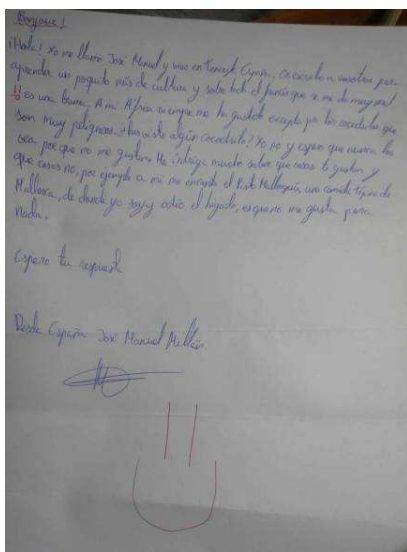 Bonjour!
¡Hola! Yo me llamo José Manuel y vivo en España. Os escribo a vosotros para
aprender un poquito más de cultura y sobre todo el francés que se me da muy mal
!! es una broma. A mi África siempre me ha gustado excepto por los cocodrilos que
son muy peligrosos, ¿has visto algún cocodrilo? Yo no y espero que nunca los
vea porque no me gustan. Me intriga mucho saber que cosas te gustan y
que cosas no, por ejemplo a mi me encanta el Mallorquín, una comida típica de
Mallorca, de donde yo soy y odio el hígado, es que no me gusta para
nada.
Espero tu respuesta
Desde España José Manuel